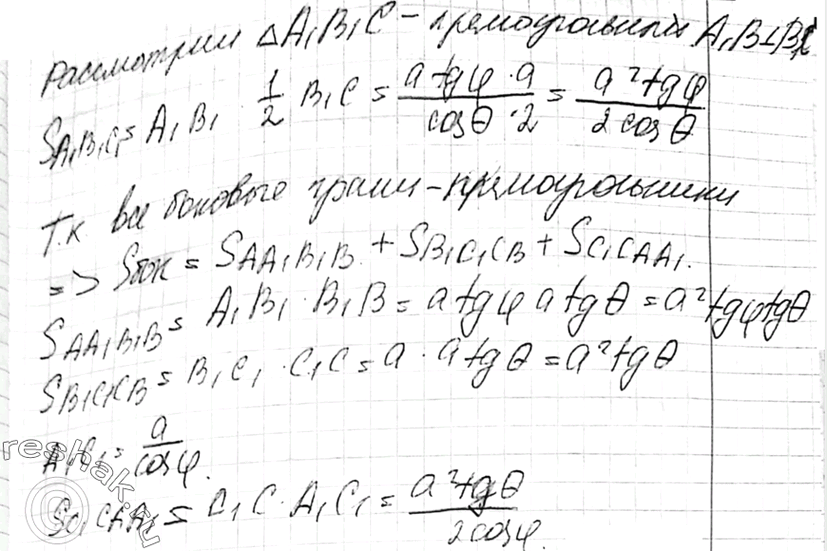 Рассмотрим △A₁B₁C – прямоугольный A₁B⊥B₁C
S_A₁B₁C₁ = A₁B₁ · 1/2 B₁C = (a tgφ · a)/(cosθ · 2) = (a² tgφ)/(2cosθ)
Т.к все боковые грани – прямоугольники
=> Sбок = S_AA₁B₁B + S_B₁C₁CB + S_C₁CAA₁.
S_AA₁B₁B = A₁B₁ · B₁B = a tgφ a tgθ = a² tgφ tgθ
S_B₁C₁CB = B₁C₁ · C₁C = a · a tgθ = a² tgθ
A₁C₁ = a/cosφ.
S_C₁CAA₁ = C₁C · A₁C₁ = (a² tgθ)/(2cosφ).
reshak.ru